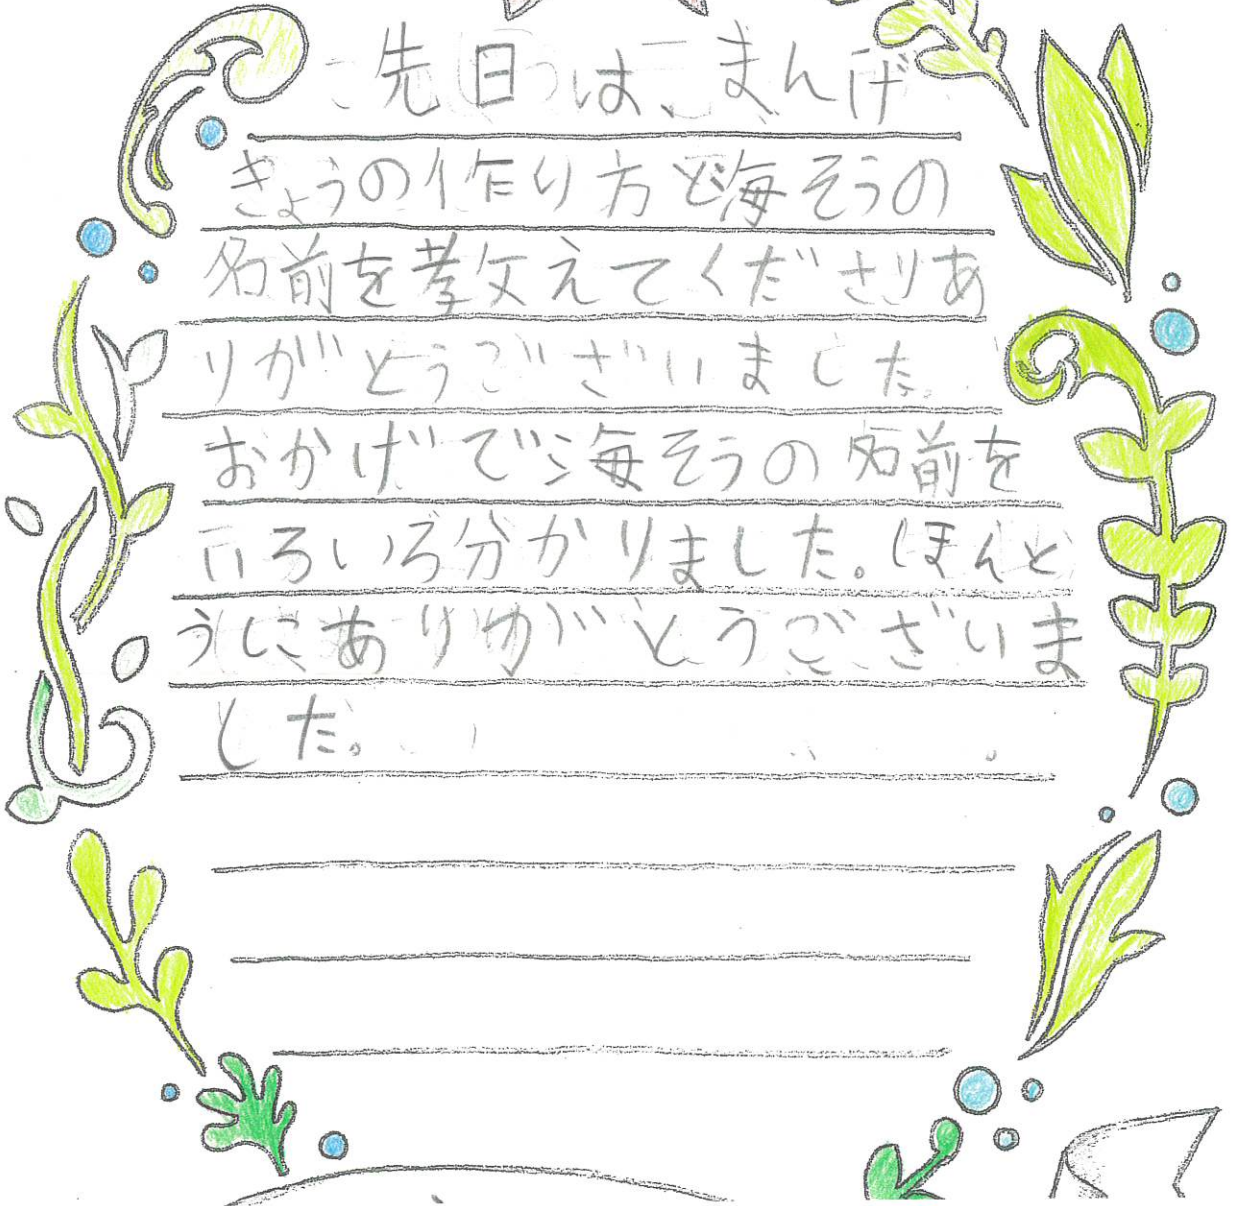 先日は、まんげ
きょうの作り方と海そうの
名前を教えてくださりあ
りがとうございました。
おかげで海そうの名前を
いろいろ分かりました。ほんと
うにありがとうございま
した。